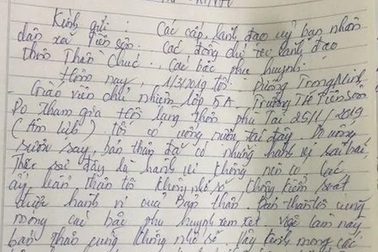 Kính gửi: Các cấp lãnh đạo uỷ ban nhân
dân xã Tiên Sơn. Các đồng chí lãnh đạo
thôn Thần Chúc. Các bác phụ huynh.
Hôm nay: 1/3/2019 Tôi: Dương Trọng Minh
Giáo viên chủ nhiệm lớp 5A Trường TH Tiên Sơn
Do tham gia 25/1/2019
(Âm lịch). Tôi có uống rượu tại đây. Do uống
rượu say, bản thân đã có những hành vi sai
Thực sự đây là hành vi không nên có. Lúc
ấy bản thân tôi không nhớ rõ, không kiểm soát
được hành vi của bản thân. bản thân tôi cũng
mong các bác phụ huynh xem xét việc làm này
bản thân cũng không nhớ rõ mong các